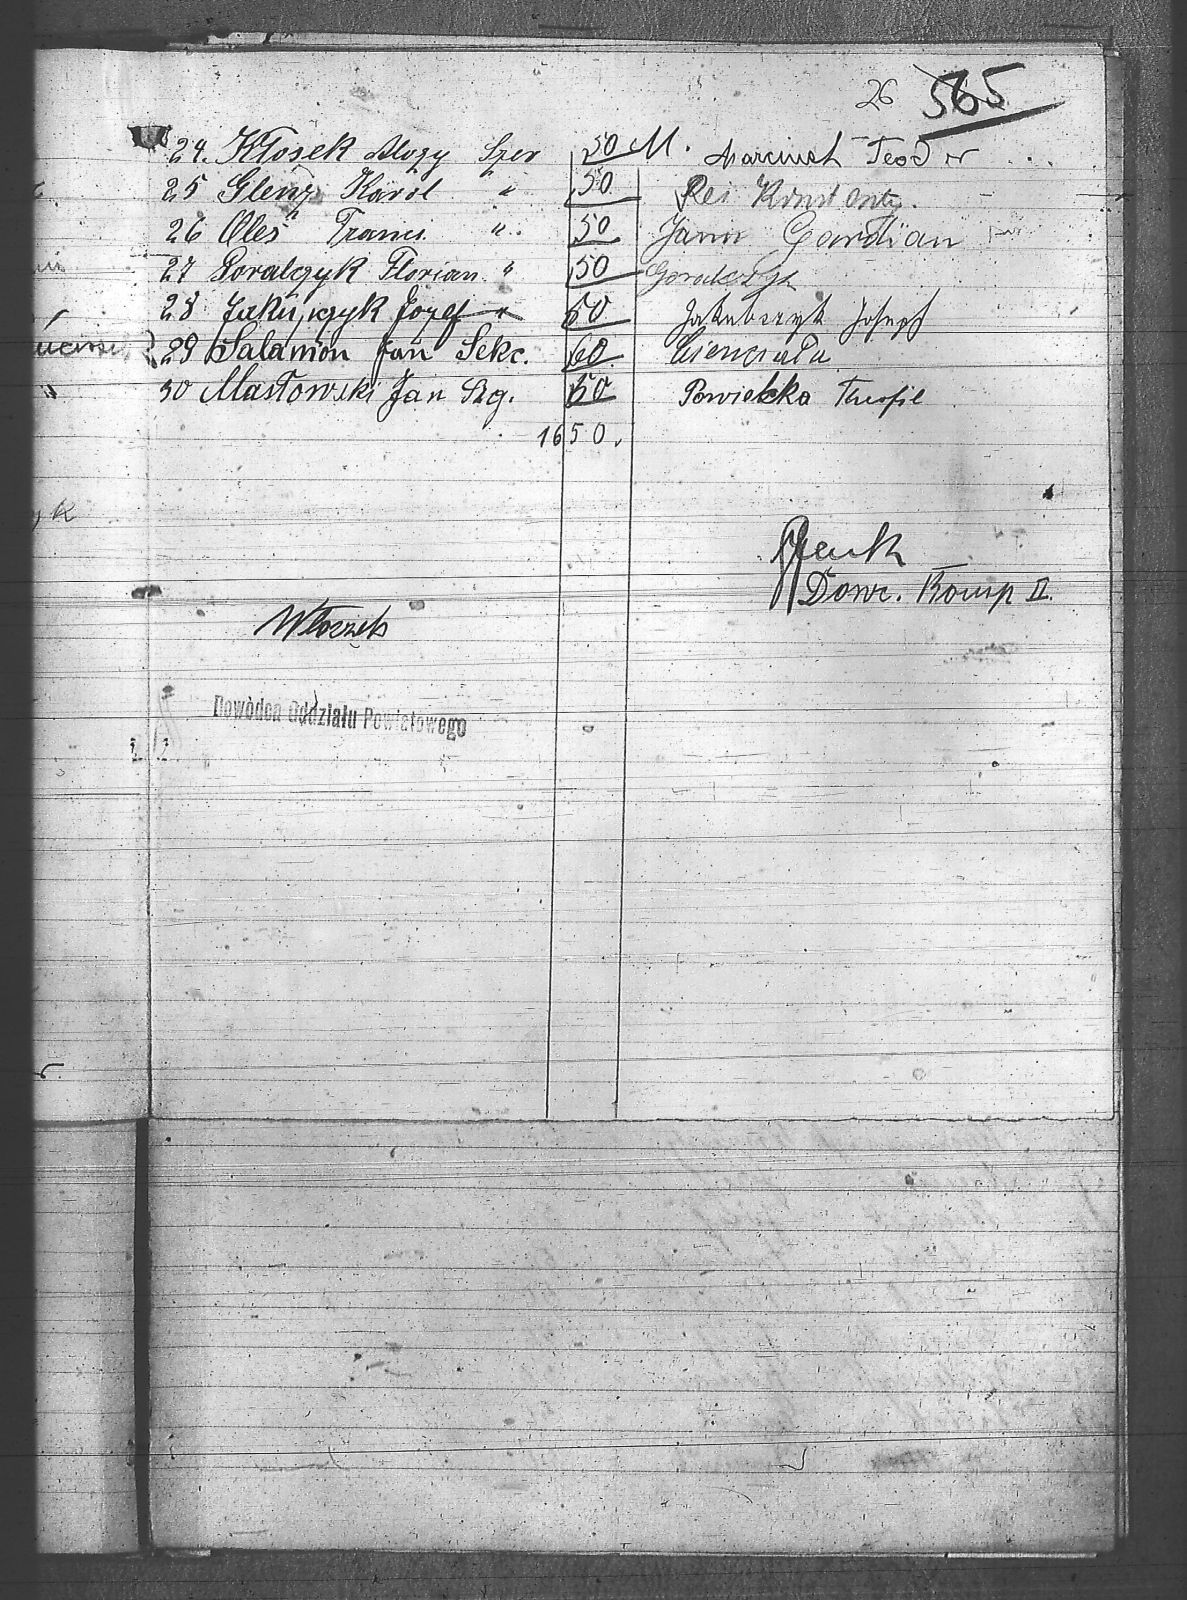 26 565
24. Kłosek Alojzy Szer 50 M. Marciniok Teodor
25 Glenz Karol " 50 Rei Konstanty.
26 Oleś Franc. " 50 Jano Gardian
27 Goralczyk Florian " 50 Goralczyk
28 Jakubczyk Jozef " 50 Jakubczyk Josef
29 Salamon Jan Sekc. 60 Cienciala
30 Masłowski Jan Szg. 60 Powiecko Teofil
1650.
Dowc. Komp II.
Włoczek
Dowódca Oddziału Powiatowego